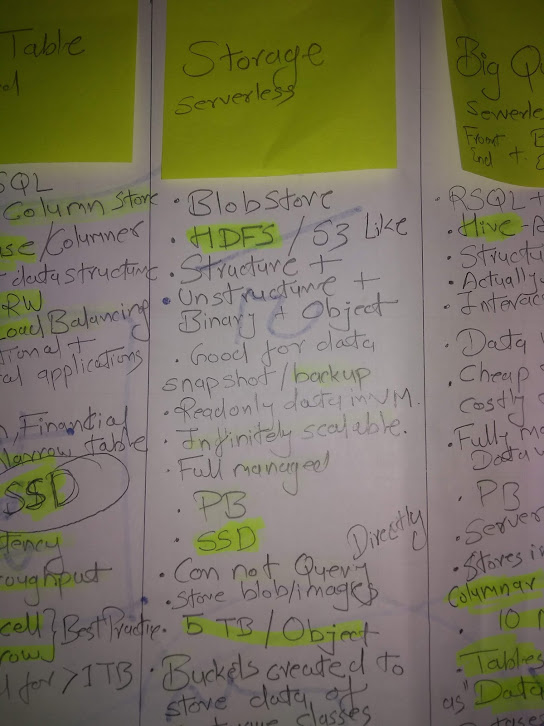 Table
Storage
Serverless
Big Qu
Serverle
Front
End +
SQL
Column Store
ase/Columner
data structure
RW
Load Balancing
tional +
al applications
Financial
Narrow table
SSD
tency
roughput
cell? Best Practice
row
for >1TB
• Blobstore
• HDFS / S3 Like
• Structure +
• Unstructure +
Binary + Object
• Good for data
snapshot/backup
• Readonly data in VM.
• Infinitely scalable.
• Full managed
• PB
• SSD
Directly
• Can not Query
• store blob/images
• 5 TB / Object
• Buckets created to
store data of
classes
• RSQL +
• Hive-A
• Structu
• Actually
• Interac
• Data
• Cheap
Costly
• Fully ma
Data w
• PB
• Server
• Stores in
Columnar
• 10
• Tables
as "Data